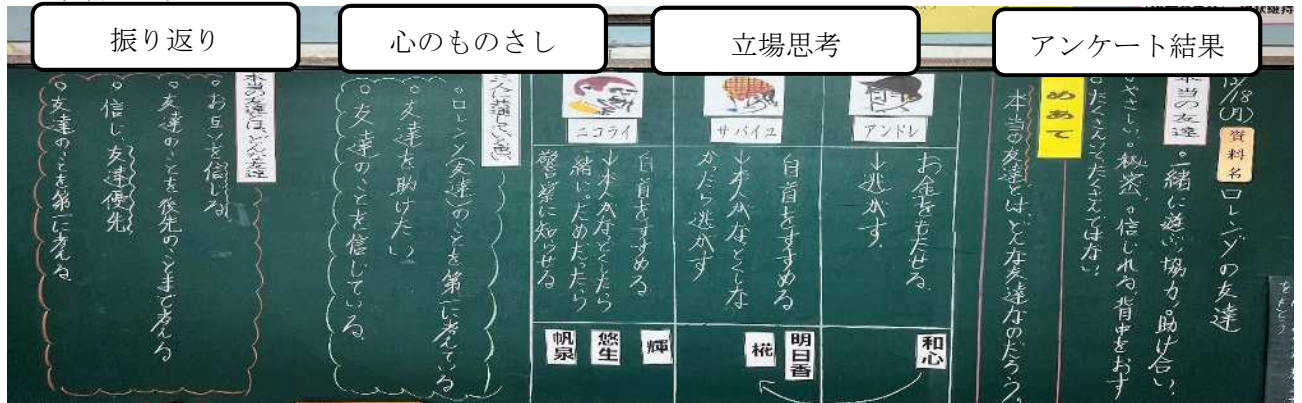 振り返り
心のものさし
立場思考
アンケート結果
12/18(月)
資料名
ロレンゾの友達
本当の友達
。一緒に遊ぶ、協力。助け合い
。やさしい。秘密。信じれる、背中をおす
。たくさんいてたくさんではない
めあて
本当の友達とは、どんな友達なのだろう。
アンドレ
お金をもたせる
→逃がす
和心
サバイユ
自首をすすめる
→本人がなっとくしな
かったら逃がす
明日香
椛
ニコライ
自首をすすめる
→本人がなっとくしたら
一緒に。だめだったら
警察に知らせる
輝
悠生
帆泉
三人に共通している思い
。ロレンゾ(友達)のことを第一に考えている
。友達を助けたい
。友達のことを信じている。
本当の友達とは、どんな友達
。お互いを信じる
。友達のことを後先のことまで考える
。信じ、友達優先
。友達のことを第一に考える